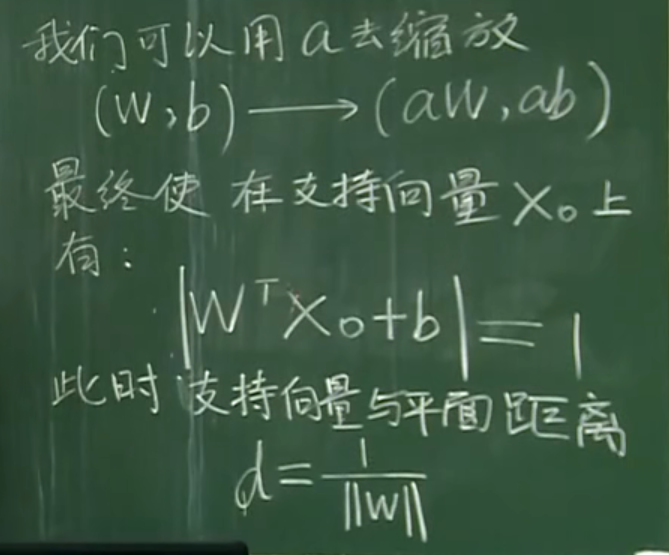 我们可以用a去缩放
(W,b)⟶(aW,ab)
最终使 在支持向量X₀上
有：
|WᵀX₀+b|=1
此时 支持向量与平面距离
d=1/‖W‖